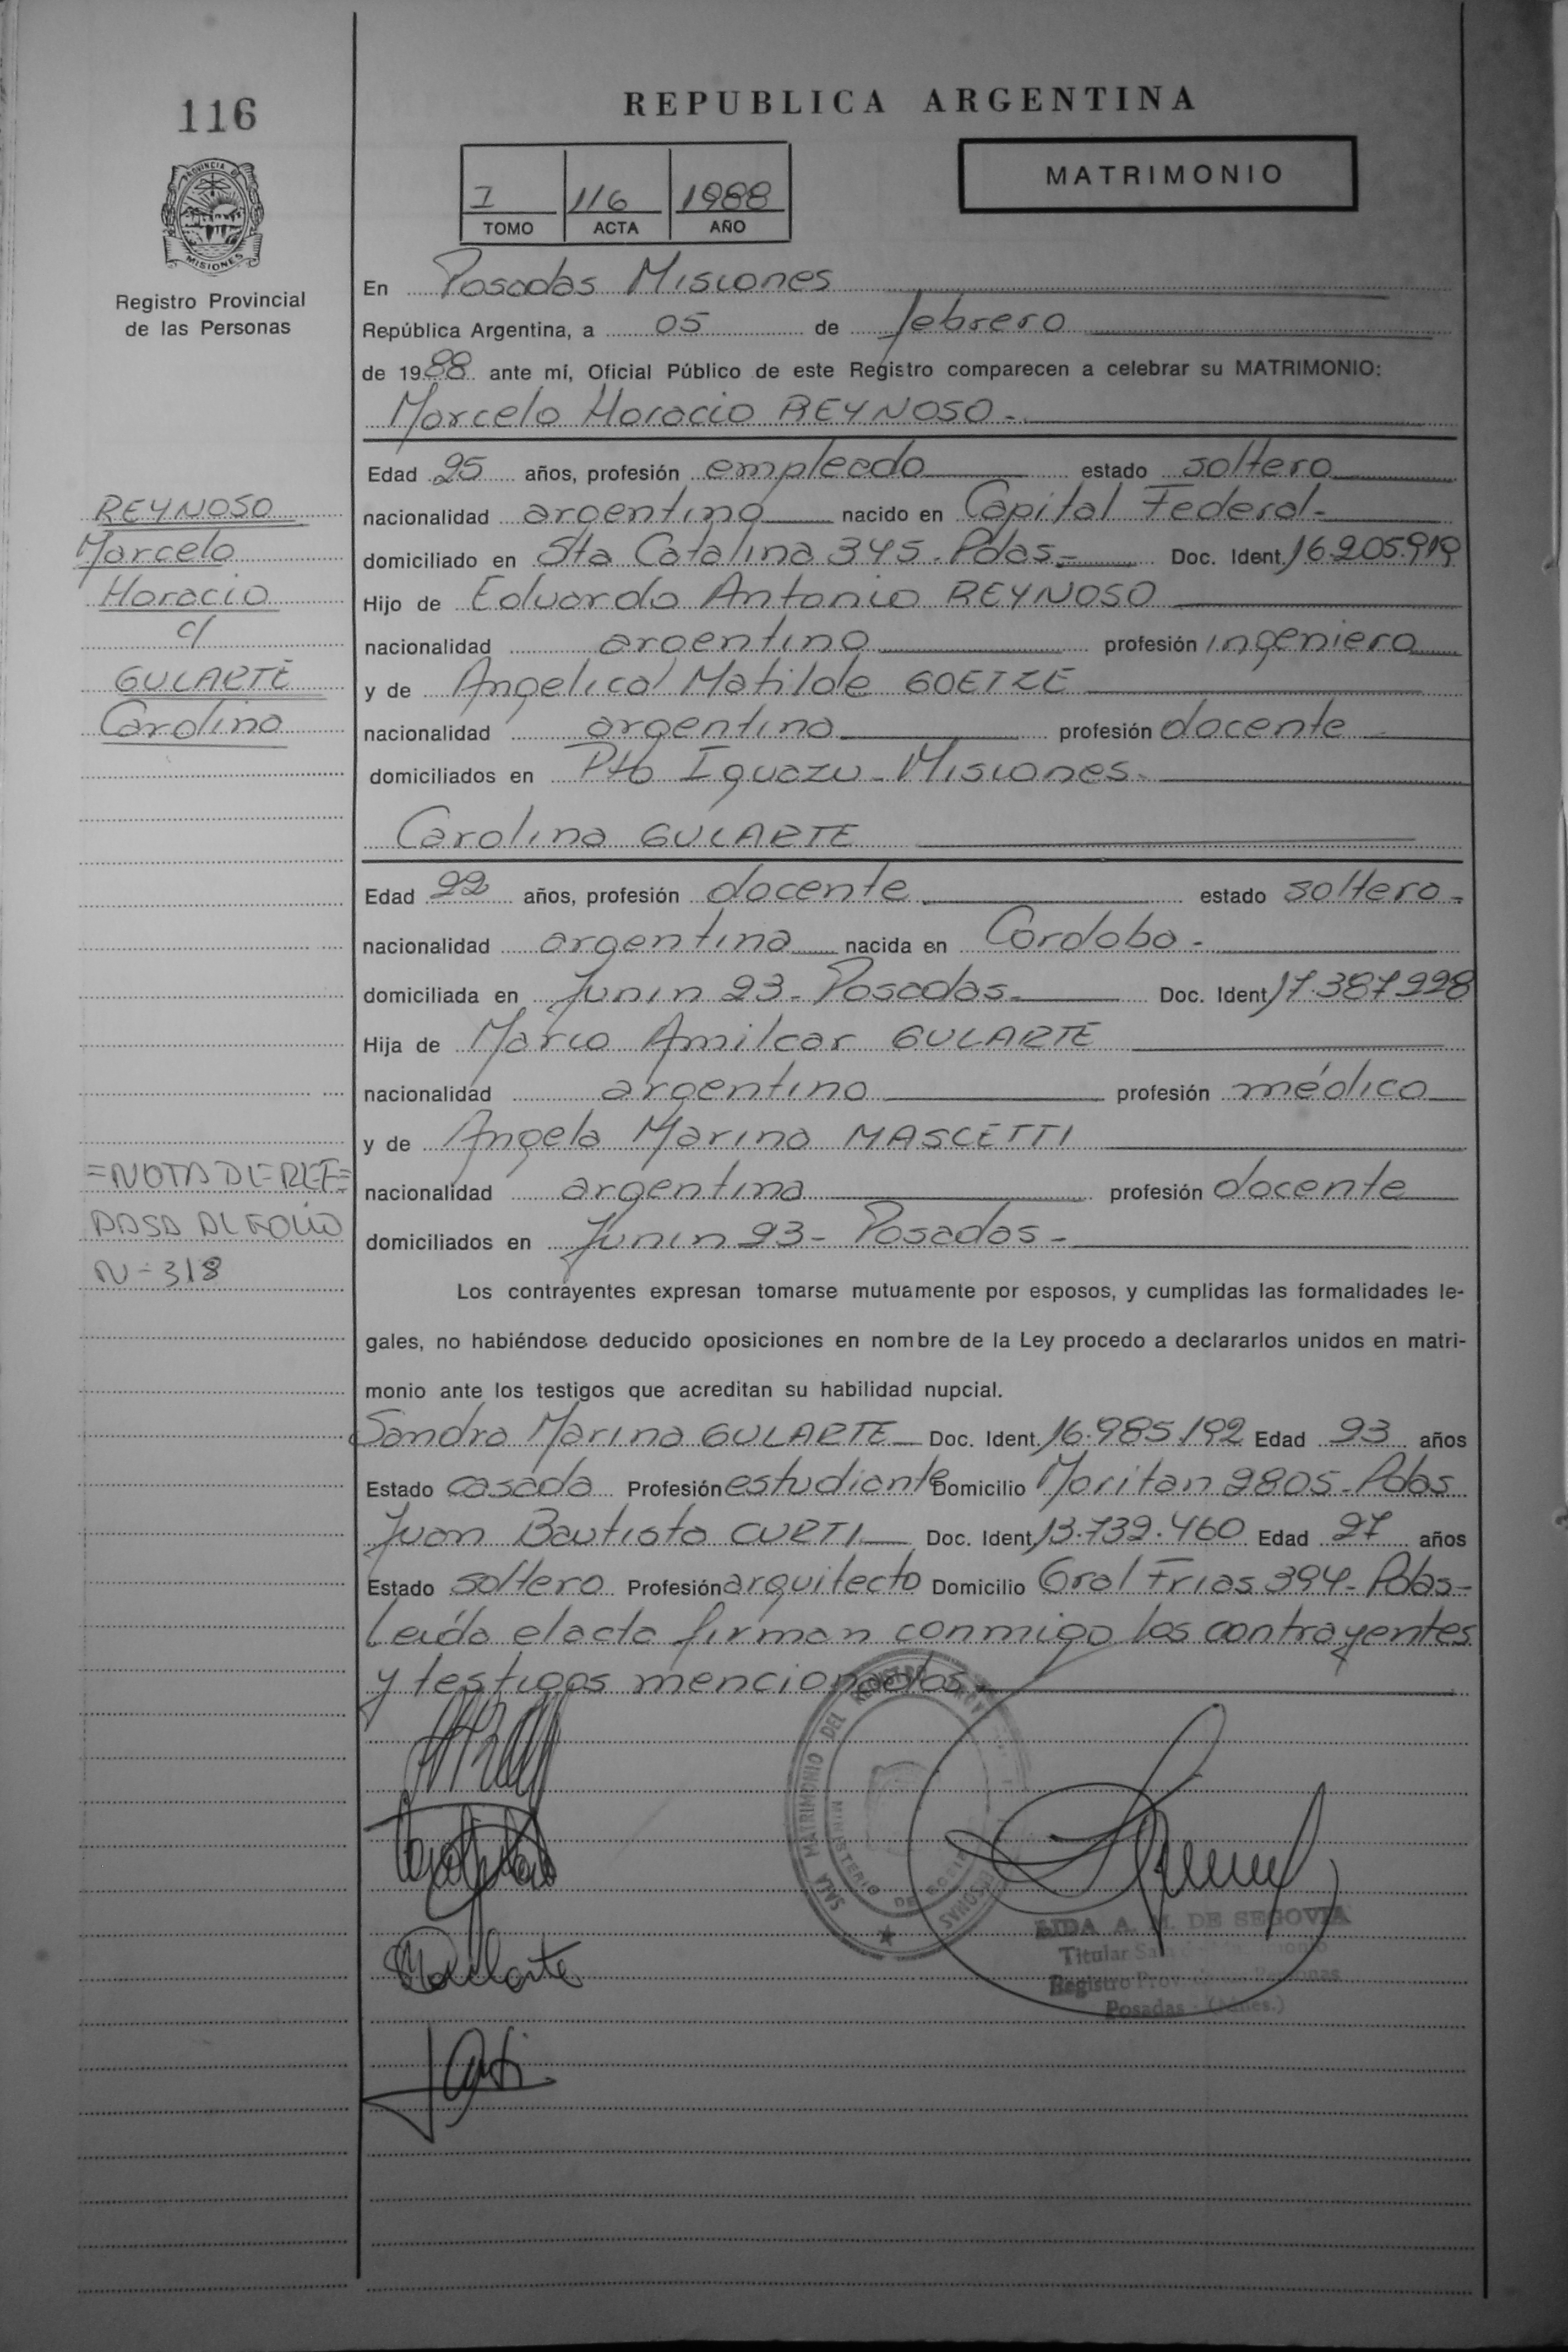 116
REPUBLICA ARGENTINA
MATRIMONIO
I 116 1988
TOMO ACTA AÑO
PROVINCIA DE
MISIONES
Registro Provincial
de las Personas
En Posadas Misiones
República Argentina, a 05 de febrero
de 1988 ante mí, Oficial Público de este Registro comparecen a celebrar su MATRIMONIO:
Marcelo Horacio REYNOSO-
Edad 25 años, profesión empleado estado soltero
nacionalidad argentino nacido en Capital Federal-
domiciliado en Sta Catalina 345-Pdas- Doc. Ident. 16.205.919
Hijo de Eduardo Antonio REYNOSO
nacionalidad argentino profesión ingeniero
y de Angelica Matilde GOETZE
nacionalidad argentina profesión docente
domiciliados en Pto Iguazu-Misiones-
REYNOSO
Marcelo
Horacio
c/
GULARTE
Carolina
Carolina GULARTE
Edad 22 años, profesión docente estado soltera-
nacionalidad argentina nacida en Cordoba-
domiciliada en Junin 23-Posadas- Doc. Ident. 17.387.228
Hija de Marco Amilcar GULARTE
nacionalidad argentino profesión médico
y de Angela Marina MASCETTI
nacionalidad argentina profesión docente
domiciliados en Junin 23- Posadas-
=NOTA DE REF=
PASA AL FOLIO
N-318
Los contrayentes expresan tomarse mutuamente por esposos, y cumplidas las formalidades le-
gales, no habiéndose deducido oposiciones en nombre de la Ley procedo a declararlos unidos en matri-
monio ante los testigos que acreditan su habilidad nupcial.
Sandra Marina GULARTE Doc. Ident. 16.985.192 Edad 23 años
Estado casada Profesión estudiante Domicilio Moritan 2805-Pdas
Juan Bautista CURTI Doc. Ident. 13.732.460 Edad 27 años
Estado soltero Profesión arquitecto Domicilio Gral Frias 394-Pdas-
Leída el acta firman conmigo los contrayentes
y testigos mencionados-
SALA MATRIMONIO DEL REGISTRO
MINISTERIO DE
LIDA A. M. DE SEGOVIA
Titular Sala
Registro Prov. de las Personas
Posadas - (Mnes.)